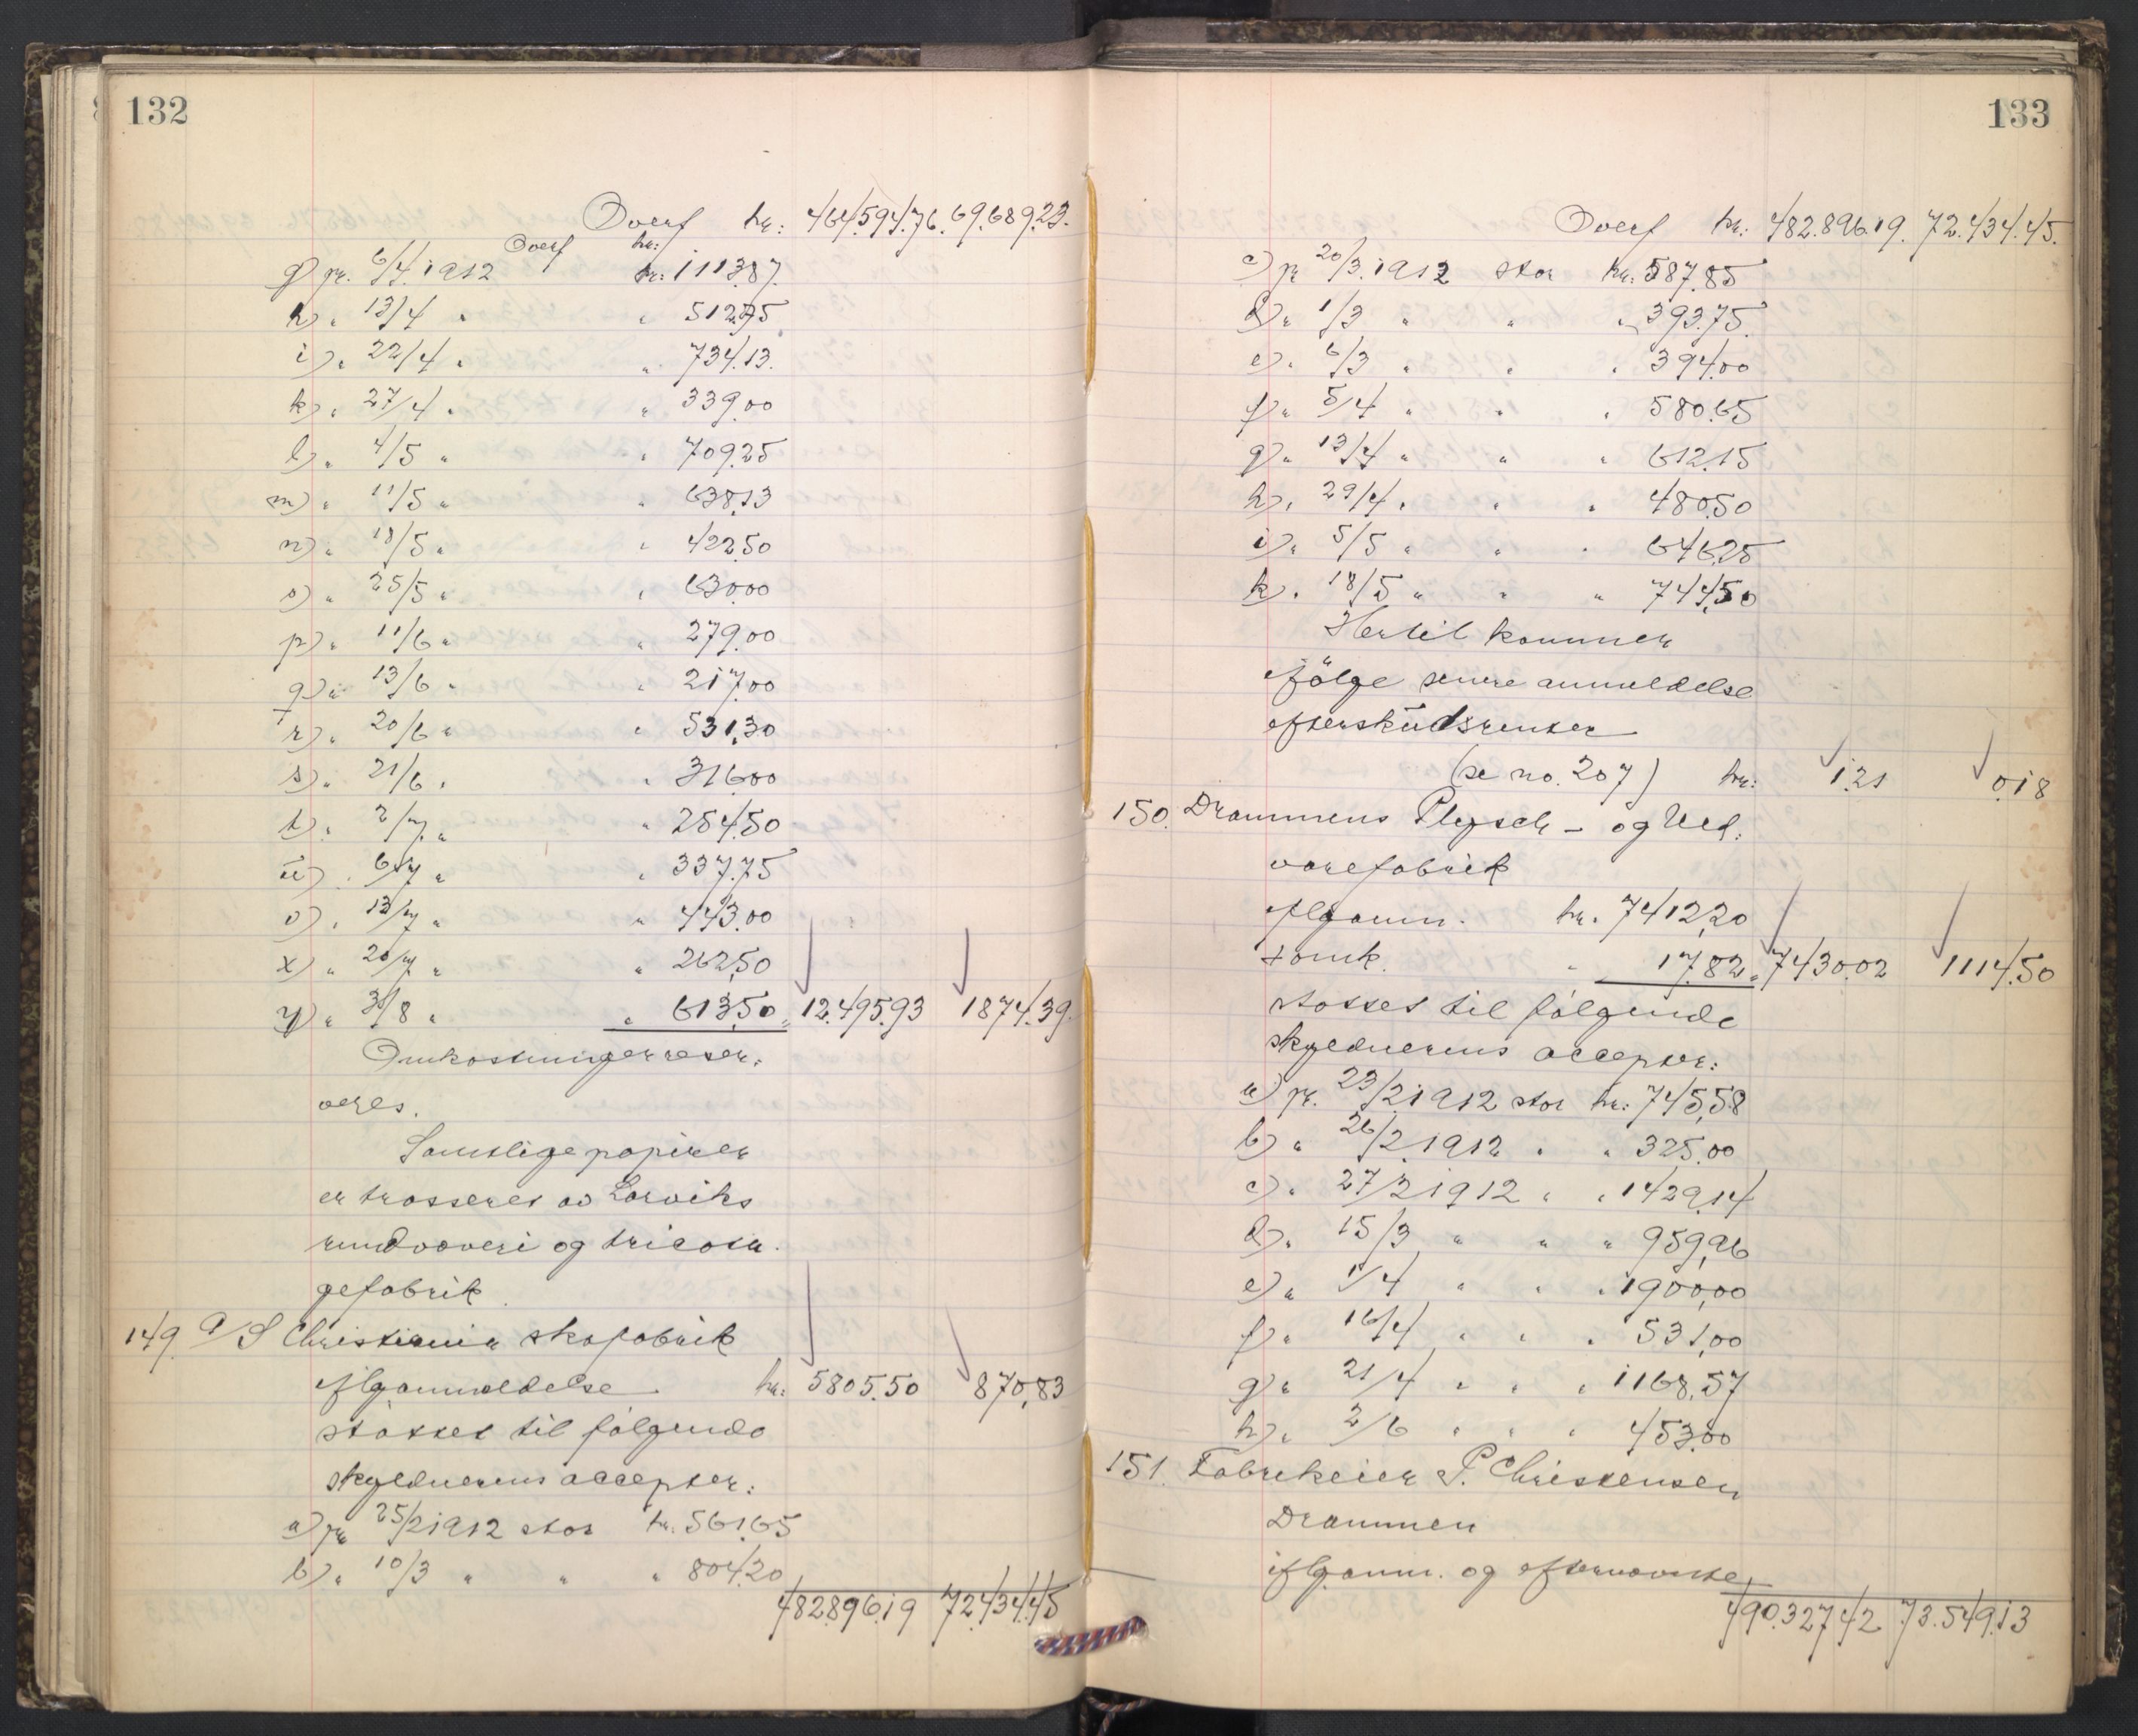 132
Overf kr: 464.594.76. 69.689.23.
Overf kr:
g) pr. 6/4.1912 kr: 1113.87.
h) " 13/4 " " 512.75
i) " 22/4 " " 734.13.
k) " 27/4 " " 339.00
l) " 4/5 " " 709.25
m) " 11/5 " " 638.13
n) " 18/5 " " 422.50
o) " 25/5 " " 630.00
p) " 11/6 " " 279.00
q) " 13/6 " " 217.00
r) " 20/6 " " 531.30
s) " 21/6 " " 316.00
t) " 2/7 " " 254.50
u) " 6/7 " " 337.75
v) " 13/7 " " 443.00
x) " 20/7 " " 262.50
y) " 3/8 " " 613.50 " 12.495.93 1874.39.
Omkostninger reser-
veres.
Samtlige papirer
er trasseret av Larviks
rundvæveri og tricota-
gefabrik.
149. A/S Christiania skofabrik
iflg anmeldelse. kr: 5805.50 870,83
støttet til følgende
skyldnerens accepter:
a) pr 25/2 1912 stor kr. 561.65
b) " 10/3 " " " 804.20
482.896.19 72.434.45
133
Overf kr: 482.896.19. 72.434.45.
c) pr 20/3.1912 stor kr: 587.85
d) " 1/3 " " " 393.75.
e) " 6/3 " " " 394.00
f) " 5/4 " " " 580.65
g) " 13/4 " " " 612.15
h) " 29/4 " " " 480.50
i) " 5/5 " " " 646.25
k) " 18/5 " " " 744,50
Hertil kommer
ifølge senere anmeldelse
efterskudsrenter
(se no. 207) kr: 1.21 0.18
150. Drammens Plysch- og Uld-
varefabrik
iflg anm. kr. 7412,20
+ omk. " 17.82 " 7430.02 1114.50
støttet til følgende
skyldnerens accepter:
a) pr. 23/2 1912 stor kr: 745,58
b) " 26/2 1912 " " 325.00
c) " 27/2 1912 " " 1429.14
d) " 15/3 " " " 959,96
e) " 1/4 " " " 1900,00
f) " 16/4 " " " 531,00
g) " 21/4 " " " 1168.57
h) " 2/6 " " " 453.00
151. Fabrikeier P. Christensen
Drammen
iflg anm. og
490.327.42 73.549.13